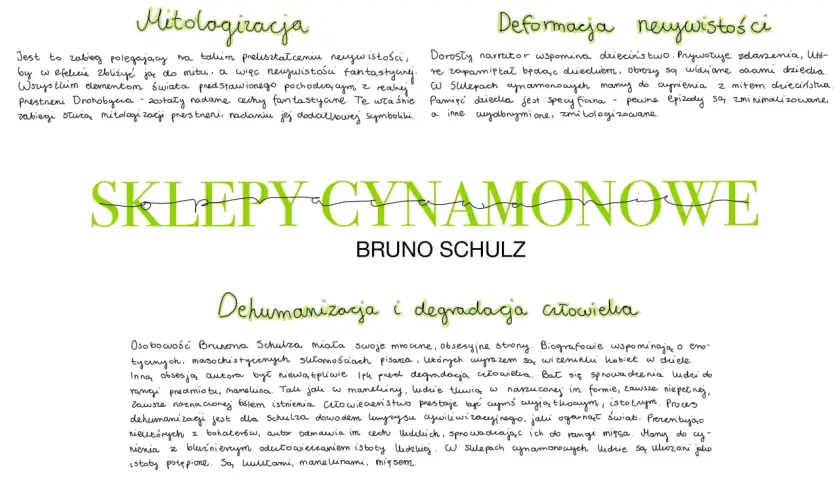 Mitologizacja
Jest to zabieg polegający na takim przekształceniu rzeczywistości,
by w efekcie zbliżyć ją do mitu, a więc rzeczywistości fantastycznej.
Wszystkim elementom świata przedstawionego pochodzącym z realnej
przestrzeni Drohobycza - zostały nadane cechy fantastyczne. Te właśnie
zabiegi służą mitologizacji przestrzeni, nadaniu jej dodatkowej symboliki.
Deformacja rzeczywistości
Dorosły narrator wspomina dzieciństwo. Przywołuje zdarzenia, któ-
re zapamiętał będąc dzieckiem, obrazy są widziane oczami dziecka.
W Sklepach cynamonowych mamy do czynienia z mitem dzieciństwa.
Pamięć dziecka jest specyficzna - pewne epizody są zminimalizowane,
a inne wyolbrzymione, zmitologizowane.
SKLEPY CYNAMONOWE
opracowanie
BRUNO SCHULZ
Dehumanizacja i degradacja człowieka
Osobowość Brunona Schulza miała swoje mroczne, obsesyjne strony. Biografowie wspominają o ero-
tycznych, masochistycznych skłonnościach pisarza, których wyrazem są wizerunki kobiet w dziele.
Inną obsesją autora był niewątpliwie lęk przed degradacją człowieka. Bał się sprowadzenia ludzi do
rangi przedmiotu, manekina. Tak jak w manekiny, ludzie tkwią w narzuconej im formie, zawsze niepełnej,
zawsze naznaczonej bólem istnienia. Człowieczeństwo przestaje być czymś wyjątkowym, istotnym. Proces
dehumanizacji jest dla Schulza dowodem kryzysu cywilizacyjnego, jaki ogarnął świat. Prezentując
niektórych z bohaterów, autor odmawia im cech ludzkich, sprowadzając ich do rangi mięsa. Mamy do czy-
nienia z bluźnierczym odczłowieczeniem istoty ludzkiej. W Sklepach cynamonowych ludzie są ukazani jako
istoty potępione. Są kukłami, manekinami, mięsem.